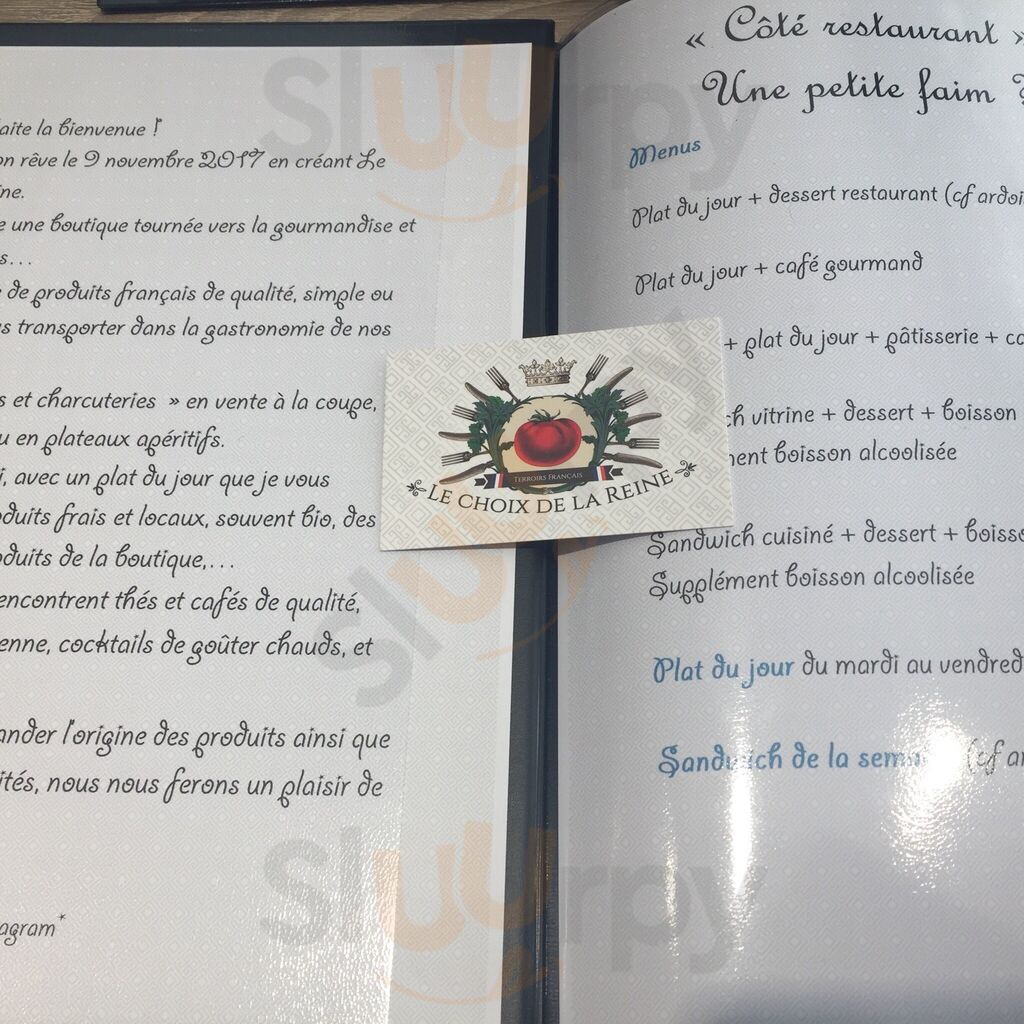 aite la bienvenue !
on rêve le 9 novembre 2017 en créant Le
ine.
e une boutique tournée vers la gourmandise et
s...
de produits français de qualité, simple ou
us transporter dans la gastronomie de nos
s et charcuteries » en vente à la coupe,
u en plateaux apéritifs.
i, avec un plat du jour que je vous
oduits frais et locaux, souvent bio, des
oduits de la boutique,...
encontrent thés et cafés de qualité,
enne, cocktails de goûter chauds, et
ander l'origine des produits ainsi que
ités, nous nous ferons un plaisir de
agram*
TERROIRS FRANÇAIS
LE CHOIX DE LA REINE
« Côté restaurant »
Une petite faim ?
Menus
Plat du jour + dessert restaurant (cf ardoi
Plat du jour + café gourmand
+ plat du jour + pâtisserie + ca
ch vitrine + dessert + boisson
ment boisson alcoolisée
Sandwich cuisiné + dessert + boisso
Supplément boisson alcoolisée
Plat du jour du mardi au vendred
Sandwich de la sema (cf ar
sluurpy
sluurpy
sluurpy